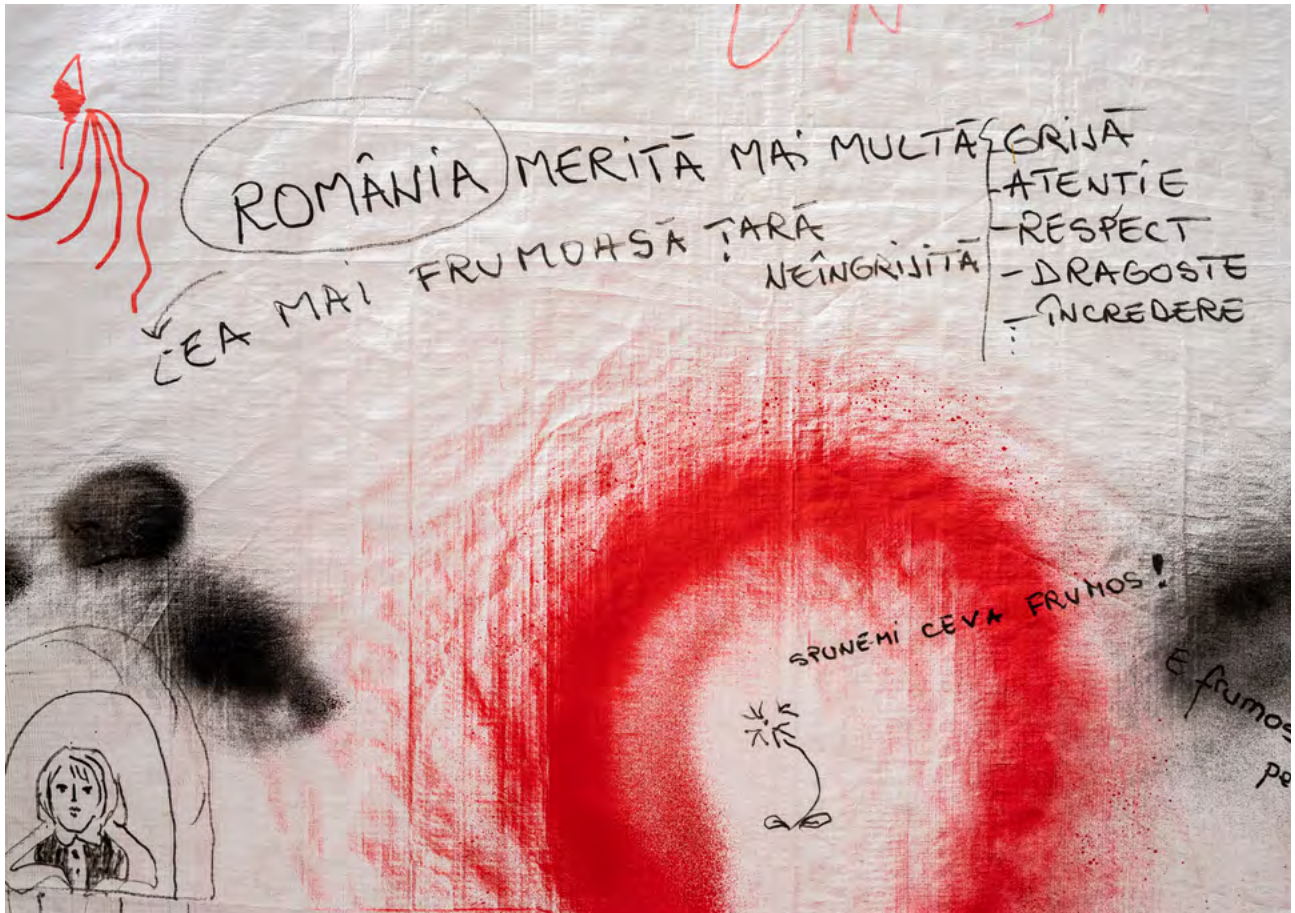 ROMÂNIA MERITĂ MAI MULTĂ
- GRIJĂ
- ATENTIE
- RESPECT
- DRAGOSTE
- ÎNCREDERE
⋮
CEA MAI FRUMOASĂ ȚARĂ
NEÎNGRIJITĂ
SPUNE-MI CEVA FRUMOS!
E frumos
pe